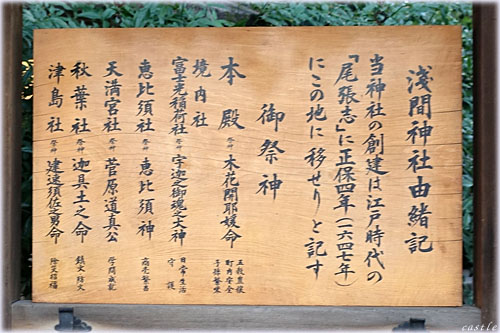 淺間神社由緒記
当神社の創建は江戸時代の
「尾張志」に正保四年(一六四七年)
にこの地に移せりと記す
御祭神
本殿 祭神 木花開耶媛命 五穀豊穣 町内安全 子孫繁栄
境内社
富士光稲荷社 祭神 宇迦之御魂之大神 日常生活 守護
恵比須社 祭神 恵比須神 商売繁昌
天満宮社 祭神 菅原道真公 学問成就
秋葉社 祭神 迦具土之命 鎮火防火
津島社 祭神 建速須佐之男命 除災招福
castle